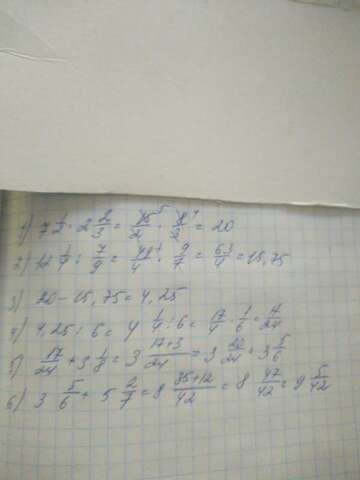 1) 7 1/2 · 2 2/3 = 15/2 · 8/2 = 20
2) 12 1/4 : 7/9 = 49/4 · 9/7 = 63/4 = 15,75
3) 20 - 15,75 = 4,25
4) 4,25 : 6 = 4 1/4 : 6 = 17/4 · 1/6 = 17/24
5) 17/24 + 3 1/8 = 3 17+3/24 = 3 20/24 = 3 5/6
6) 3 5/6 + 5 2/7 = 8 35+12/42 = 8 47/42 = 9 5/42